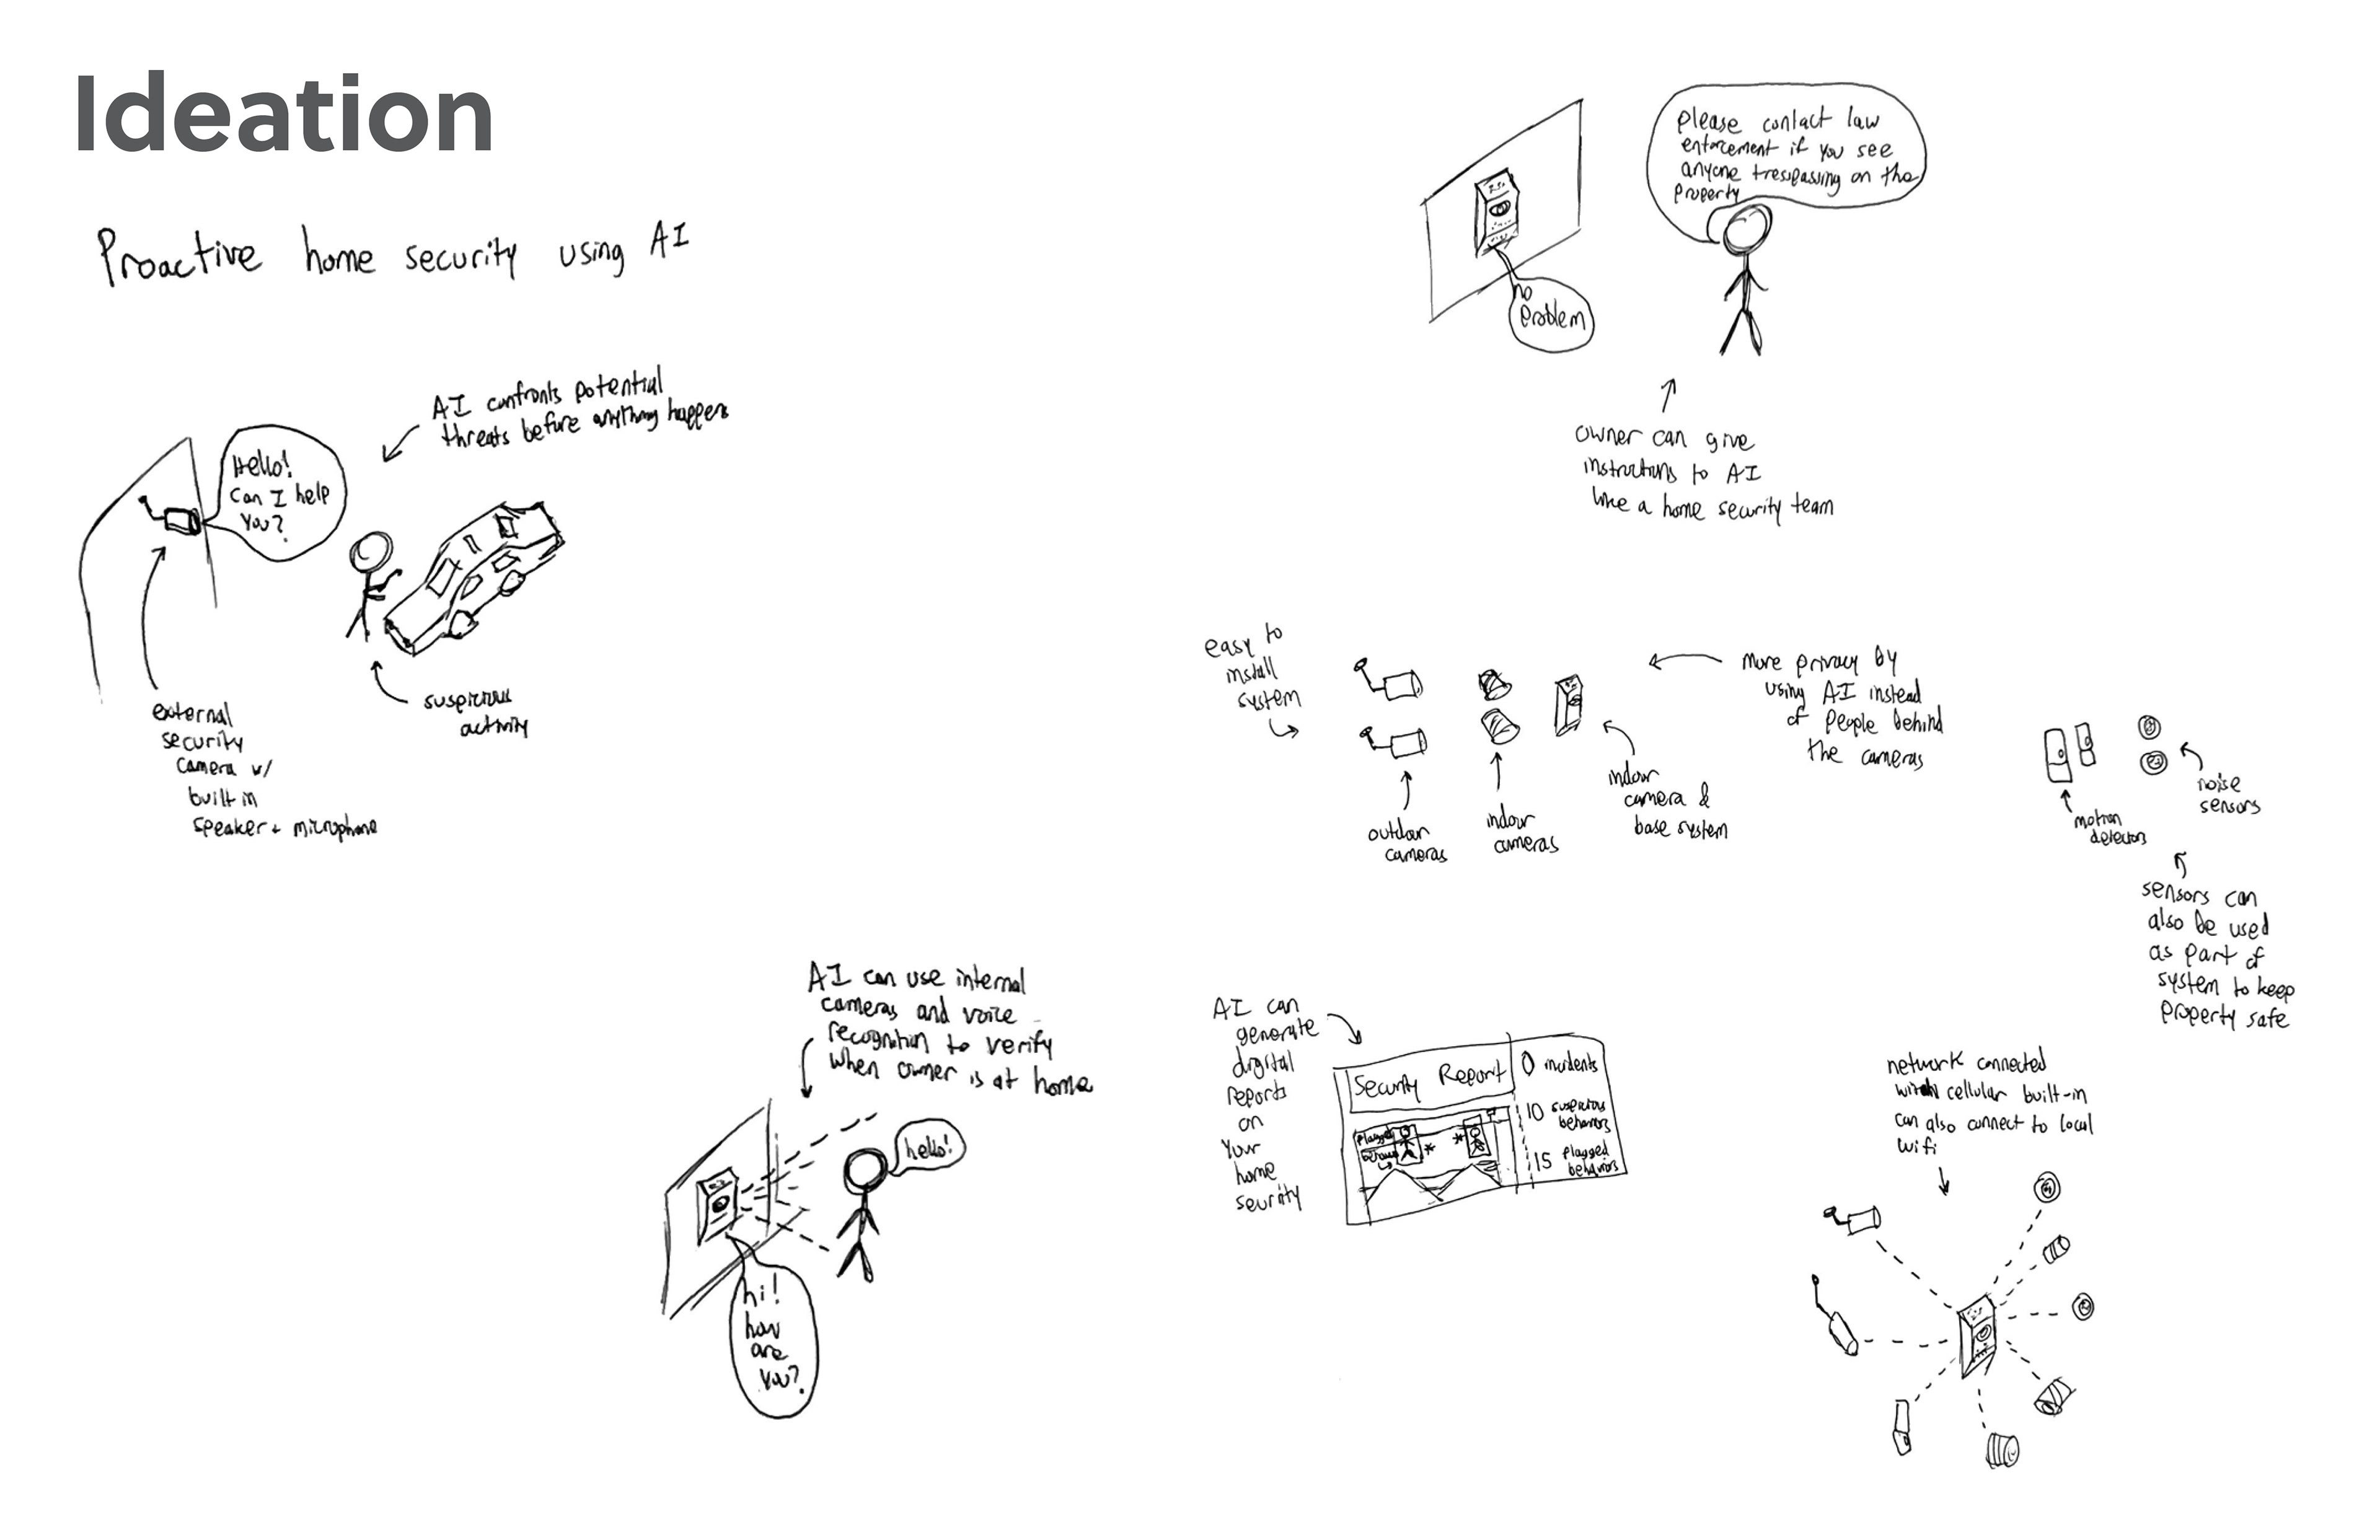 Ideation
Proactive home security using AI
AI confronts potential
threats before anything happens
Hello!
Can I help
you?
suspicious
activity
external
security
camera w/
built in
speaker + microphone
please contact law
enforcement if you see
anyone trespassing on the
property
no
problem
owner can give
instructions to AI
like a home security team
easy to
install
system
outdoor
cameras
indoor
cameras
indoor
camera &
base system
more privacy by
using AI instead
of people behind
the cameras
motion
detectors
noise
sensors
sensors can
also be used
as part of
system to keep
property safe
AI can use internal
cameras and voice
recognition to verify
when owner is at home
hello!
hi!
how
are
you?
AI can
generate
digital
reports
on
your
home
security
Security Report
0 incidents
10 suspicious
behaviors
15 flagged
behaviors
flagged
behavior
network connected
with cellular built-in
can also connect to local
wifi